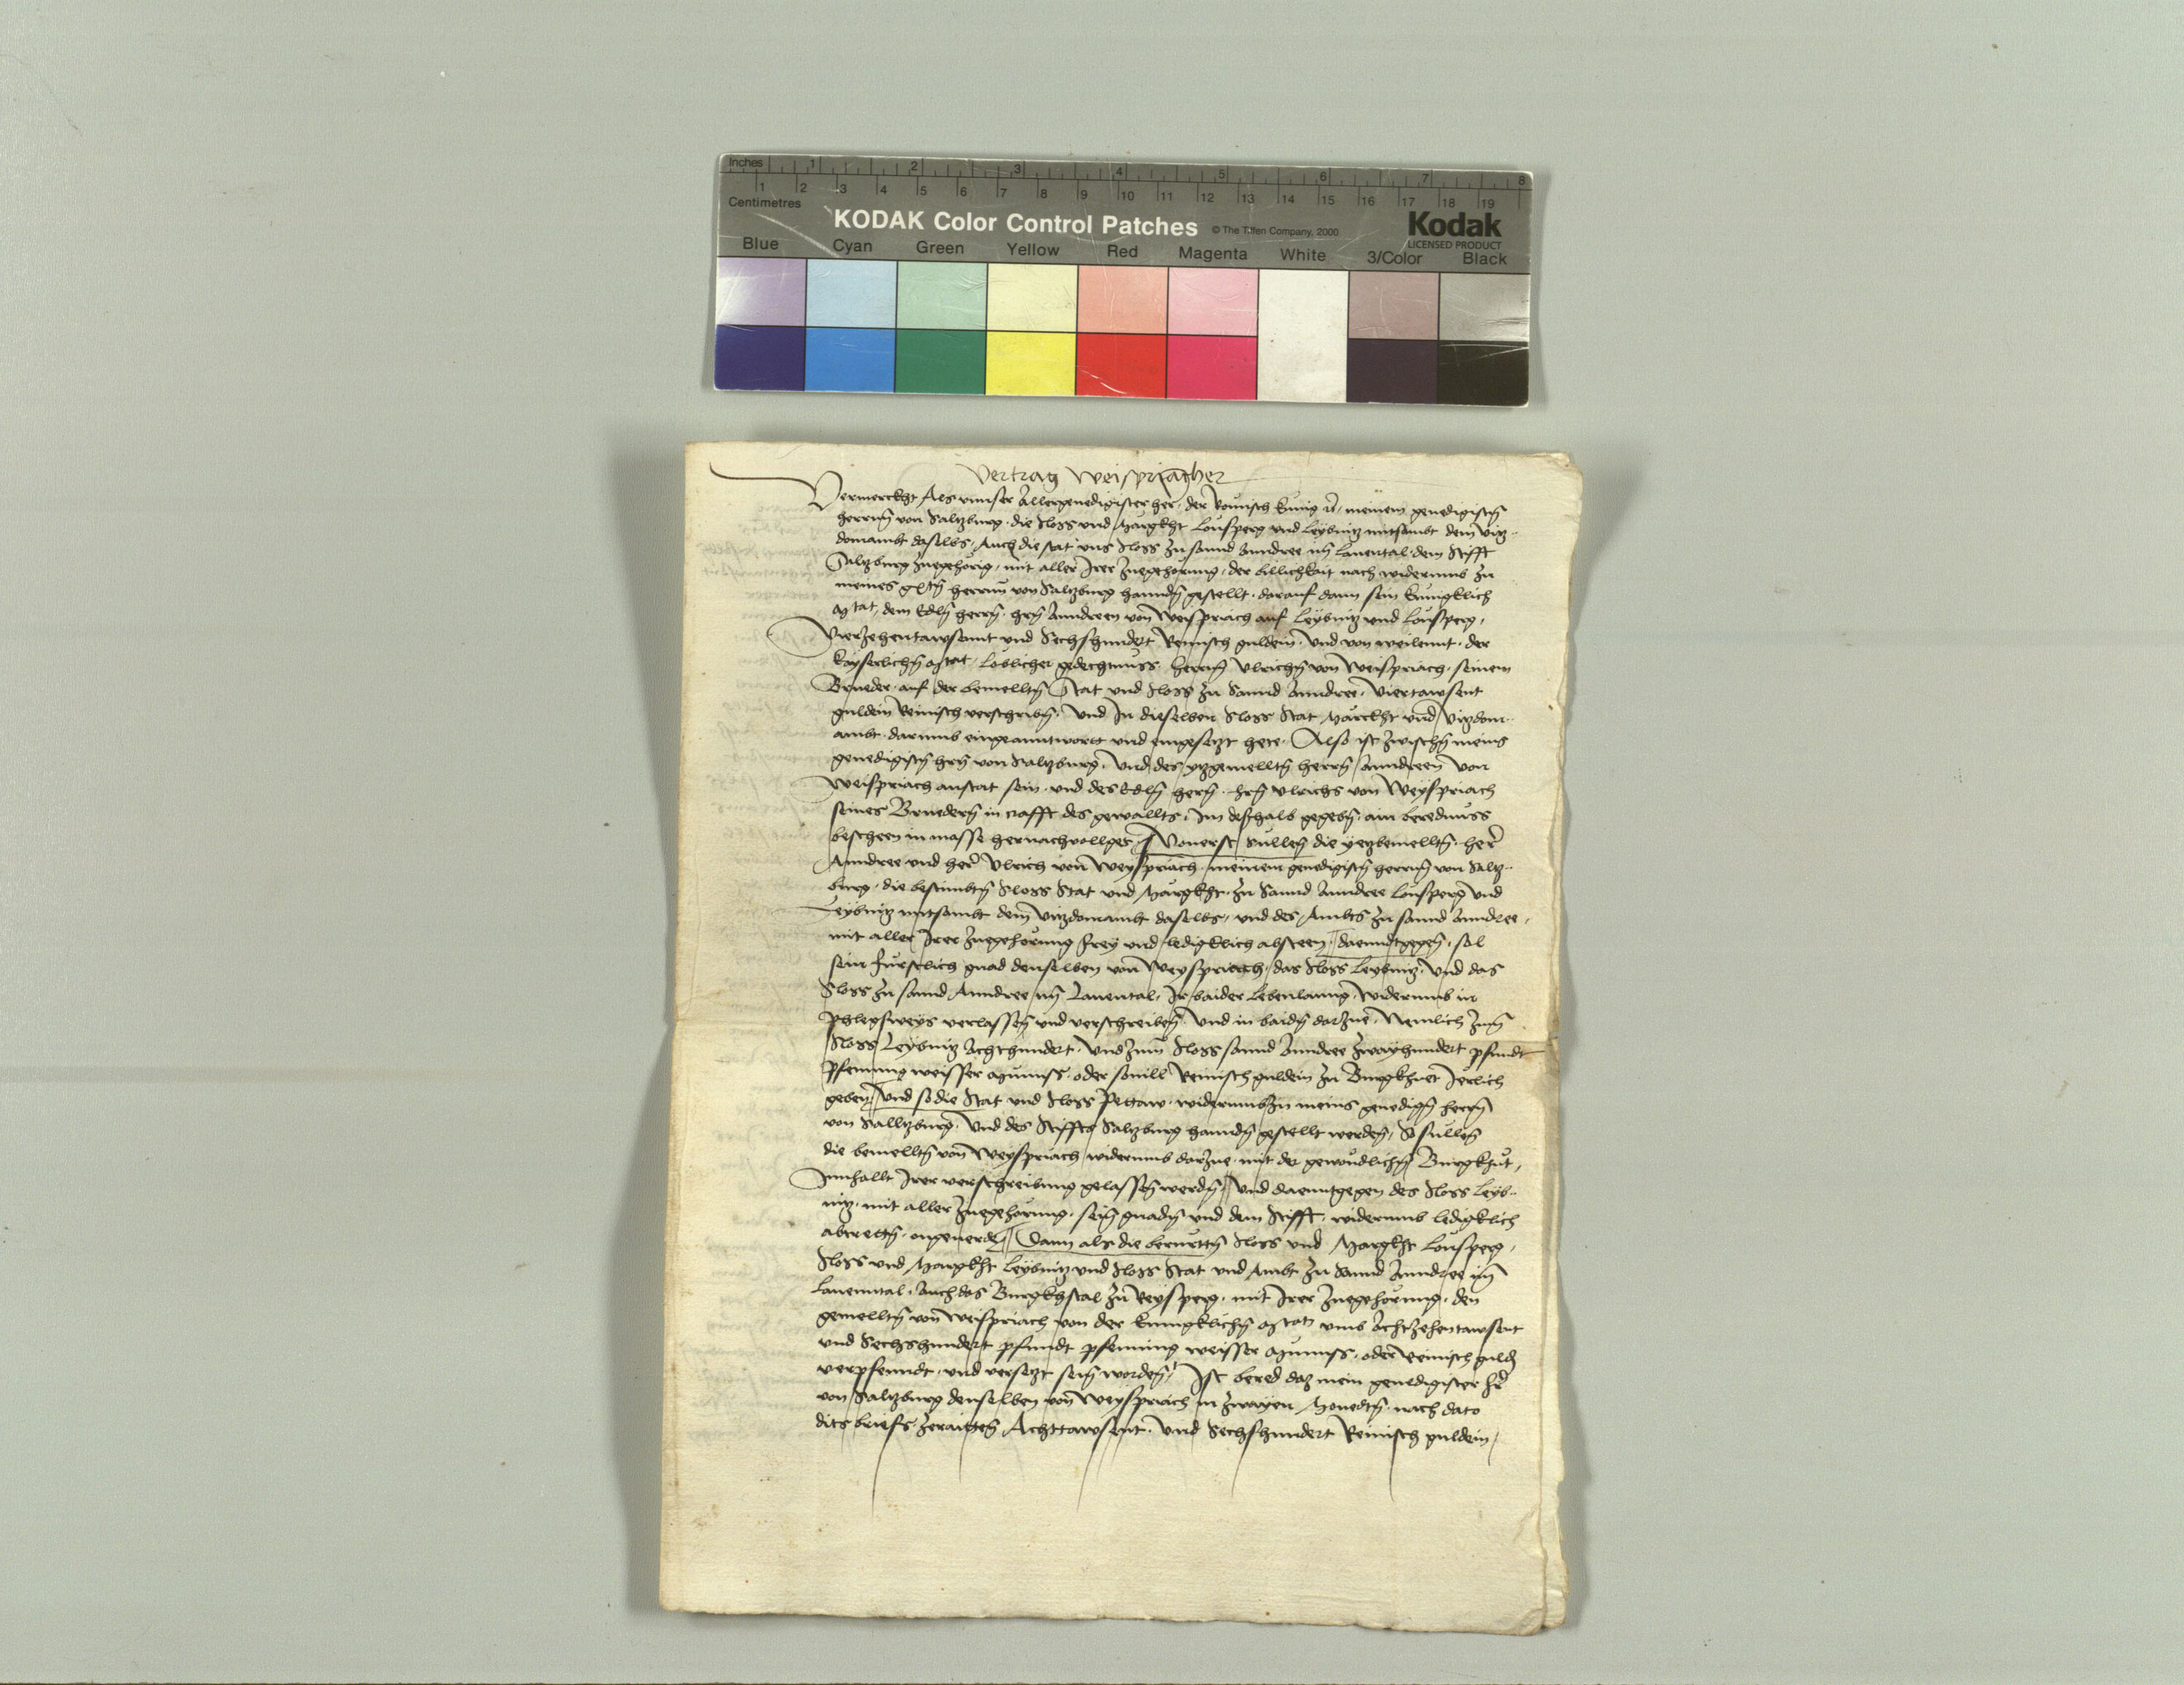 Inches 1 2 3 4 5 6 7 8
1 2 3 4 5 6 7 8 9 10 11 12 13 14 15 16 17 18 19
Centimetres
KODAK Color Control Patches © The Tiffen Company, 2000 Kodak
LICENSED PRODUCT
Blue Cyan Green Yellow Red Magenta White 3/Color Black
Vertrag Weispriacher
Vermerckht Als vnnser Allergenedigister her, der Romisch kunig meinem genedigistn
herrnn von Saltzburg die Sloss vnd Margkht Lonsperg vnd Leybnitz mitsambt dem vitz-
dombambt daselbs, Auch die stat vns Sloss zu sannd Anndree im Lauental dem Stifft
Saltzburg zuegehorig, mit aller Irer zuegehorung, der billichkait nach widerumb zu
meines herrnn von Saltzburg hanndn gestellt, darauf dann sein kunigklich
Mtat, dem Edln herrn, hrn Anndreen von Weispriach auf Leybnitz vnd Lonsperg,
Vierzehentawsennt vnd Sechshundert Reinisch guldein, vnd von weilennt, der
kayserlichn Mtat, loblicher gedechtnuss herrnn Vlrichn von Weispriach, seinem
Brueder, auf der bemelltn Stat vnd Sloss zu Sannd Anndree, Viertawsent
guldein Reinisch verschribn, vnd In dieselben Sloss Stat Marckht vnd Vitzdom-
ambt, darumb eingeanntwortt vnd eingesetzt hete, Also ist zwischn meins
genedigistn hrn von Saltzburg, vnd des ytzgemelltn herrn Anndreen von
Weispriach anstat sein, vnd des Edln hern, hrn Vlrichs von Weyspriach
seines Bruedern in crafft des gewallts, Im deshalb gegebn, ain berednuss
bescheen in masse hernachvollget, Vonerst sullen die yetzbemelltn her
Anndree vnd her Vlrich von Weyspriach meinem genedigistn herrnn von Saltz-
burg, die bestimbtn Sloss Stat vnd Margkht, zu Sannd Anndree Lonsperg vnd
Leybnitz mitsambt dem Vitzdomambt daselbs, vnd des Ambts zu sannd Anndree,
mit aller Irer zuegehorung frey vnd ledigklich absteen, daenntgegen, sol
sein furstlich gnad denselben von Weyspriach, das Sloss Leybnitz, vnd das
Sloss zu sannd Anndree im Lauental, Ir baider lebenlanng, widerumb in
phlegsweys verlassen vnd verschreiben, vnd in baidn darzue, Nemlich zum
Sloss Leybnitz Achthundert, vnd zum Sloss sannd Anndree zwayhundert pfundt
pfenning weisser Munnss, oder souill Reinisch guldein zu Burgkhuet Jerlich
geben, vnd so die Stat vnd Sloss Pettaw, widerumb zu meins genedign herrn
von Salltzburg, vnd des Stiffts Saltzburg hanndn gestellt werden, So sullen
die bemelltn von Weyspriach widerumb darzue, mit der gewondlichen Burgkhut,
Innhallt Irer verschreibung gelassen werdn, vnd daenntgegen des Sloss Leyb-
nitz, mit aller zuegehorung, sein gnadn vnd dem Stifft, widerumb ledigklich
abtrettn, ongeuerde, Dann als die berurttn Sloss vnd Margkht Lonsperg,
Sloss vnd Margkht Leybnitz vnd Sloss Stat vnd Ambt zu Sannd Anndree im
Lauenntal, Auch das Burgkhstal zu Reysperg, mit Irer zuegehorung, den
gemelltn von Weispriach von der kunigklichn Mtat, vmb Achtzehentawsent
vnd Sechshundert pfundt pfenning weisser Munnss, oder Reinisch guld
verpfenndt, vnd versetzt sein worden, Ist bered daz mein genedigister hr
von Saltzburg denselben von Weyspriach in zwayen Monedtn, nach dato
dits briefs, zeraiten Achttawsent, vnd Sechshundert Reinisch guldein,